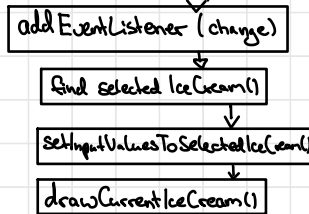 addEventListener (change)
find selected IceCream()
setInputValuesToSelectedIceCream()
drawCurrentIceCream()